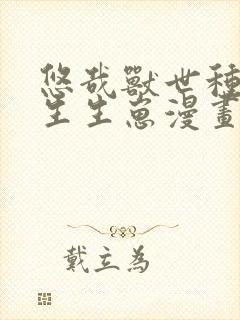 悠哉獸世種
生生崽漫畫
戴立為